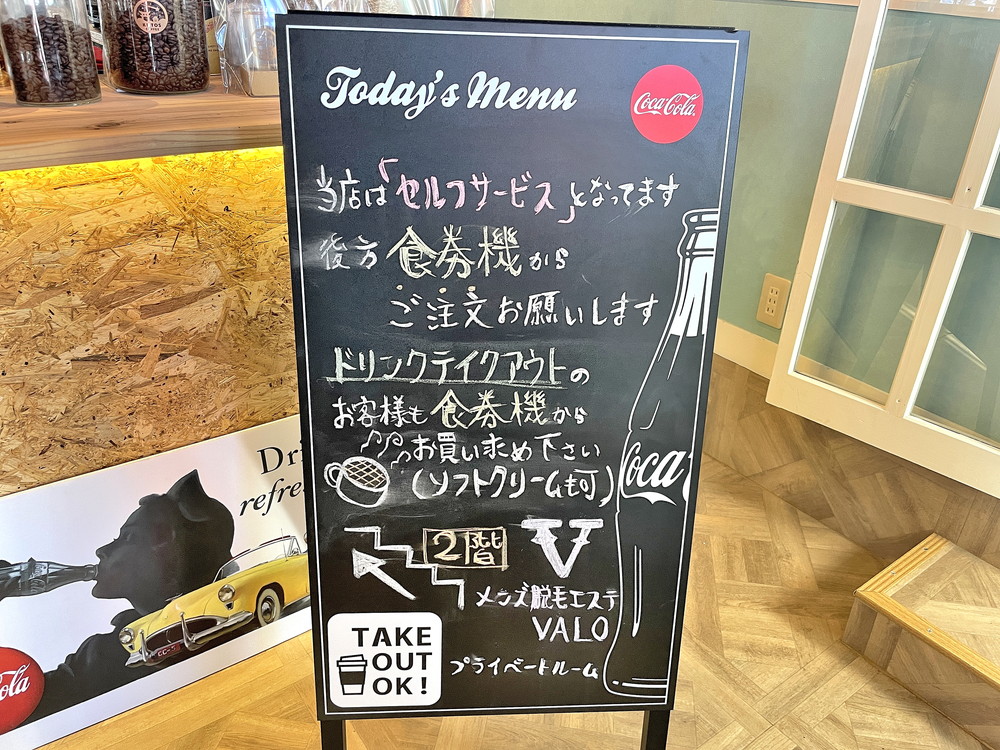 Today's Menu
Coca-Cola
当店は「セルフサービス」となってます
後方 食券機から
ご注文お願いします
ドリンクテイクアウトの
お客様も食券機から
お買い求め下さい
(ソフトクリームも可)
Coca
2階
V
メンズ脱毛エステ
VALO
プライベートルーム
TAKE
OUT
OK!
Dri
refres
Cola